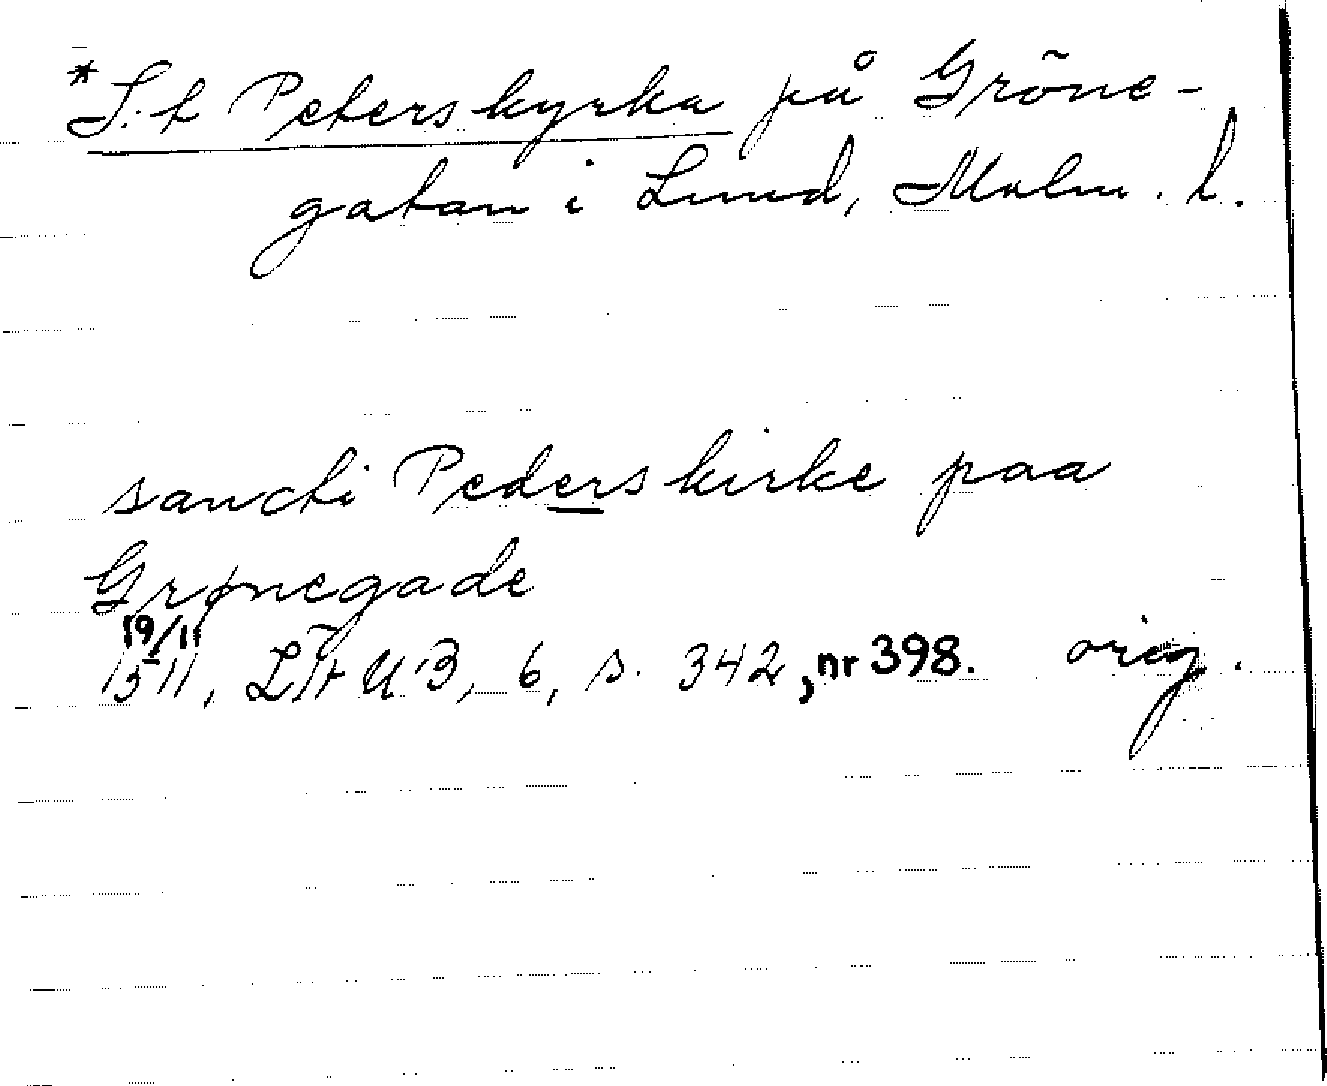 *S:t Peters kyrka på Gröne-
gatan i Lund, Malm. l.
sancti Peders kirke paa
Grønegade
19/11
1511, LÄUB, 6, s. 342, nr 398. orig.